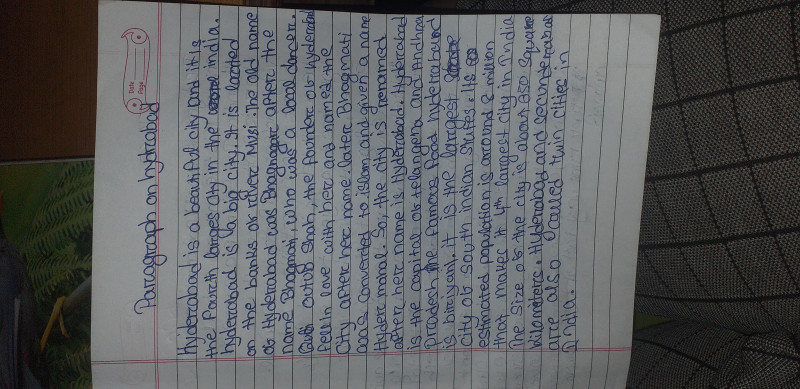 Date
Page
Paragraph on hydrabad
Hyderabad is a beautiful city and it is
the fourth larges city in the india.
hyderabad is a big city. It is located
on the banks of river Musi. The old name
of Hyderabad was Bhagnagar after the
name Bhagmati, who was a local dancer.
Qutub Shah, the founder of Hyderabad
fell in love with her and named the
City after her name. later Bhagmati
was converted to islam and given a name
Hyder mahal. So, the city is renamed
after her name is Hyderabad. Hyderabad
is the capital of telangena and Andhra
pradesh the famous food hydetrabad
is biriyani, it is the largest
City of south indian states. Its
estimated population is around 8 million
that makes it 4th largest city in India
The Size of the city is about 250 Square
kilometers. Hyderabad and secunderabad
are also called twin cities in
India.